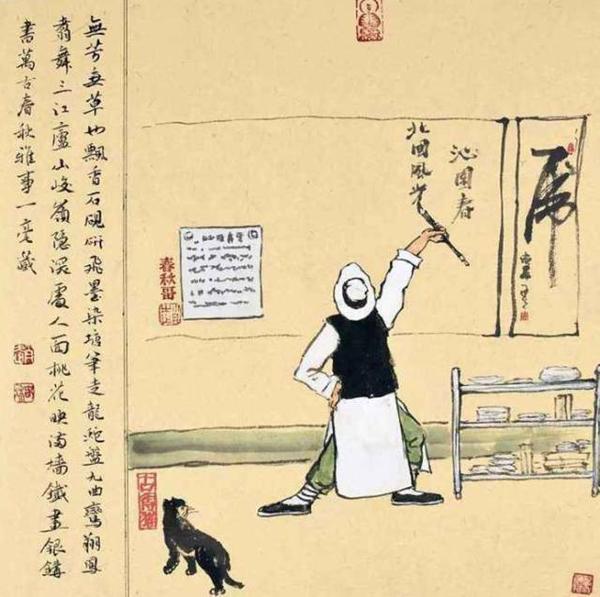 虎
沁園春
北國風光
春秋哥
無芳無草也飄香石硯研飛墨染塘筆走龍蛇盤九曲鸞翔鳳
翥舞三江廬山峻嶺隱深處人面桃花映滿墻鐵畫銀鉤
書萬古春秋雅事一毫藏